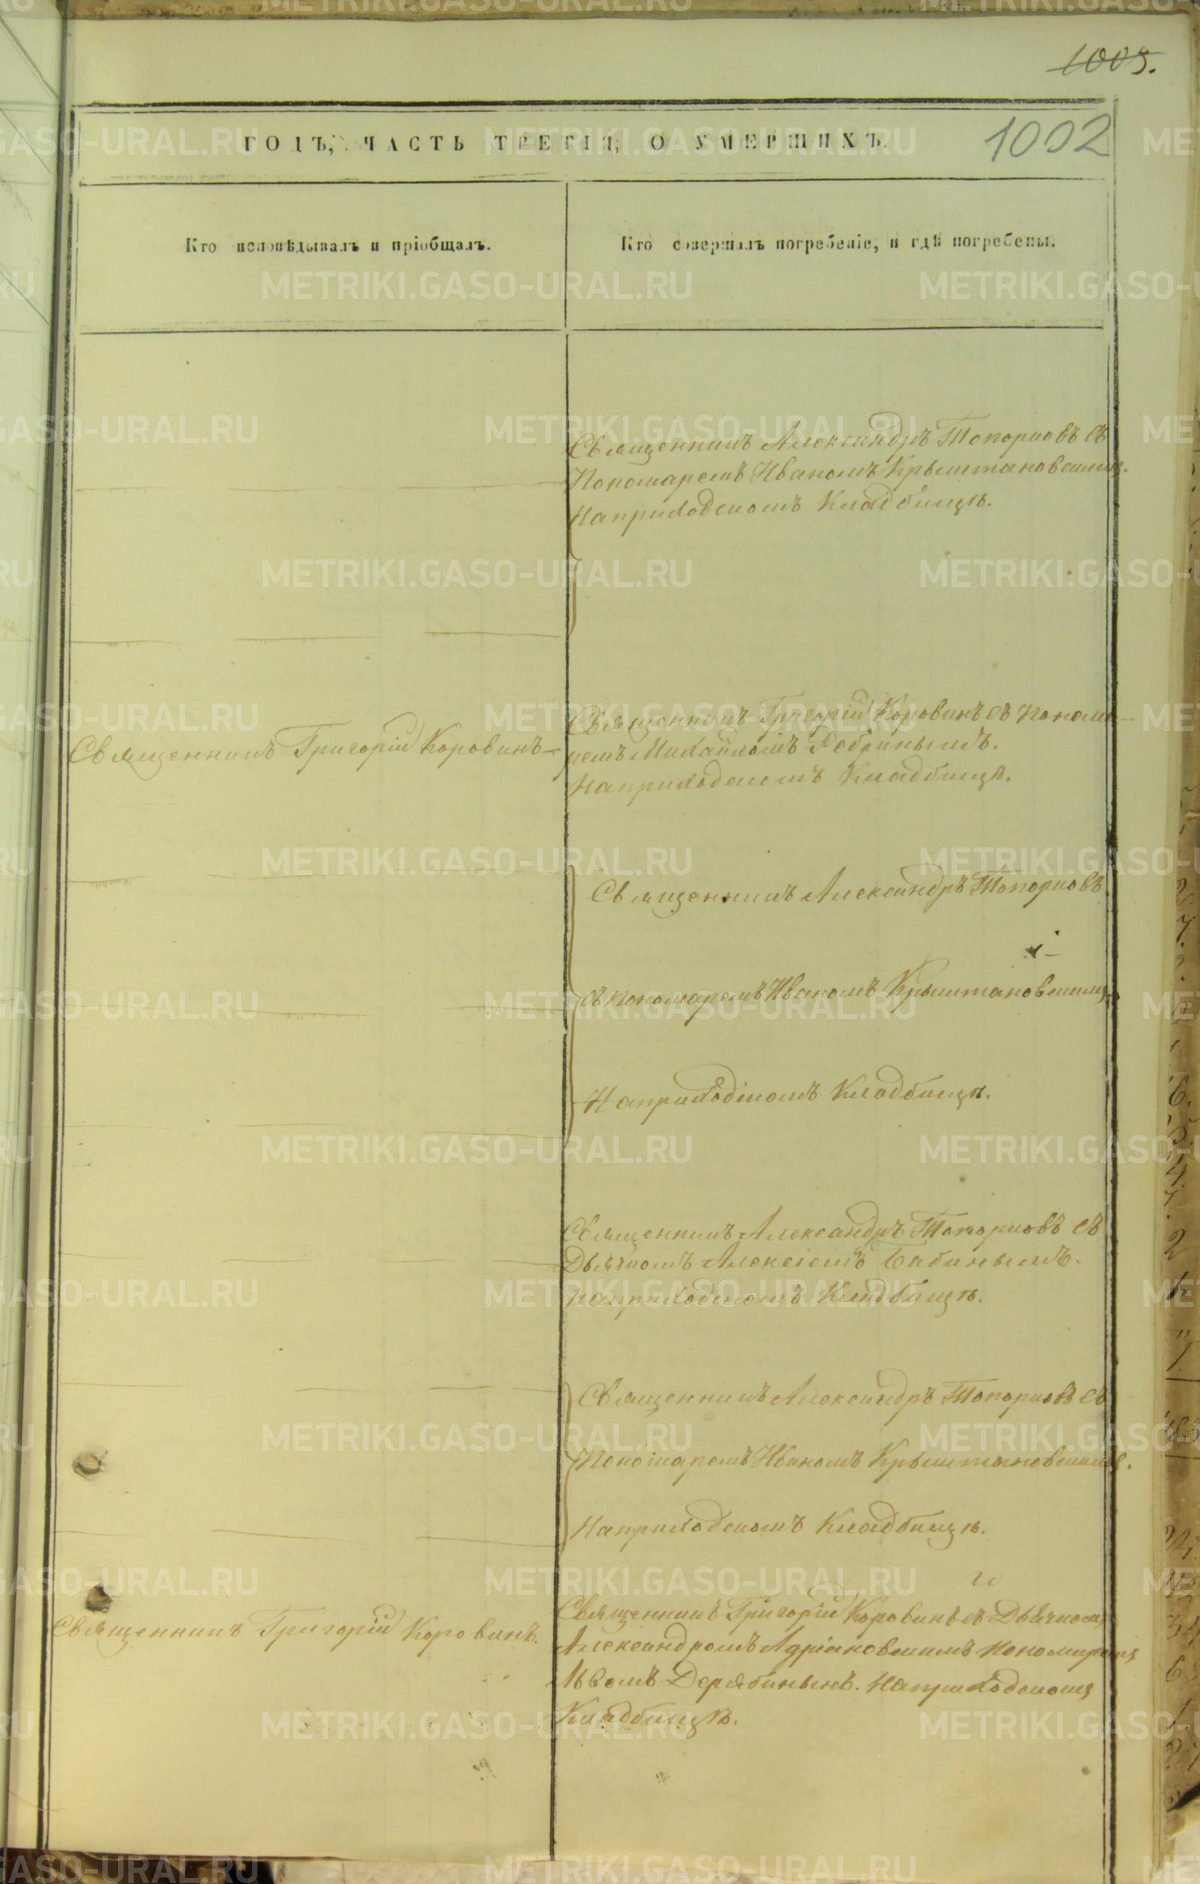 1003.
1002
ГОДЪ, ЧАСТЬ ТРЕТІЯ, О УМЕРШИХЪ.
Кто исповѣдывалъ и пріобщалъ.
Кто совершалъ погребеніе, и гдѣ погребены.
Священникъ Александръ Топорковъ съ
Пономаремъ Иваномъ Крыштановскимъ.
На приходскомъ Кладбищѣ.
Священникъ Григорій Коровинъ
Священникъ Григорій Коровинъ съ Понома-
ремъ Михаиломъ
На приходскомъ Кладбищѣ.
Священникъ Александръ Топорковъ
съ пономаремъ Иваномъ Крыштановскимъ
На приходскомъ Кладбищѣ.
Священникъ Александръ Топорковъ съ
Дьячкомъ Алексіемъ Бабинымъ.
На приходскомъ Кладбищѣ.
Священникъ Александръ Топорковъ съ
Пономаремъ Иваномъ Крыштановскимъ.
На приходскомъ Кладбищѣ.
Священникъ Григорій Коровинъ.
и
Священникъ Григорій Коровинъ съ Дьячкомъ
Александромъ Адріановскимъ пономаремъ
Львомъ Дерябинымъ. На приходскомъ
Кладбищѣ.
METRIKI.GASO-URAL.RU